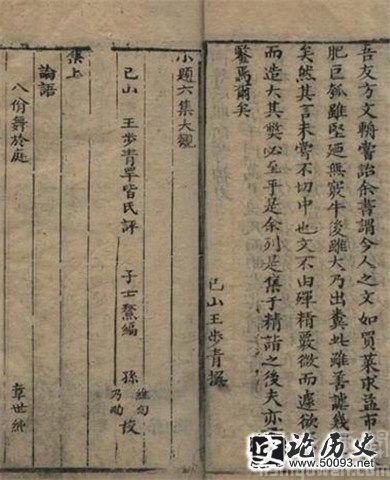 吾友方文輈嘗詒余書謂今人之文如買菜求益市
肥巨瓠雖堅廼無竅牛後雖大乃出糞此雖善謔幾
矣然其言未嘗不切中也文不由殫精嚴微而遽欲
而造大其弊必至乎是余列是集于精詣之後夫亦
鑒焉爾矣
已山王步青撰
小題六集大觀
已山 王步青罕皆氏評 子士鰲編 孫 維甸 乃 校
集上
論語
八佾舞於庭 章世純
论历史
www.50093.net